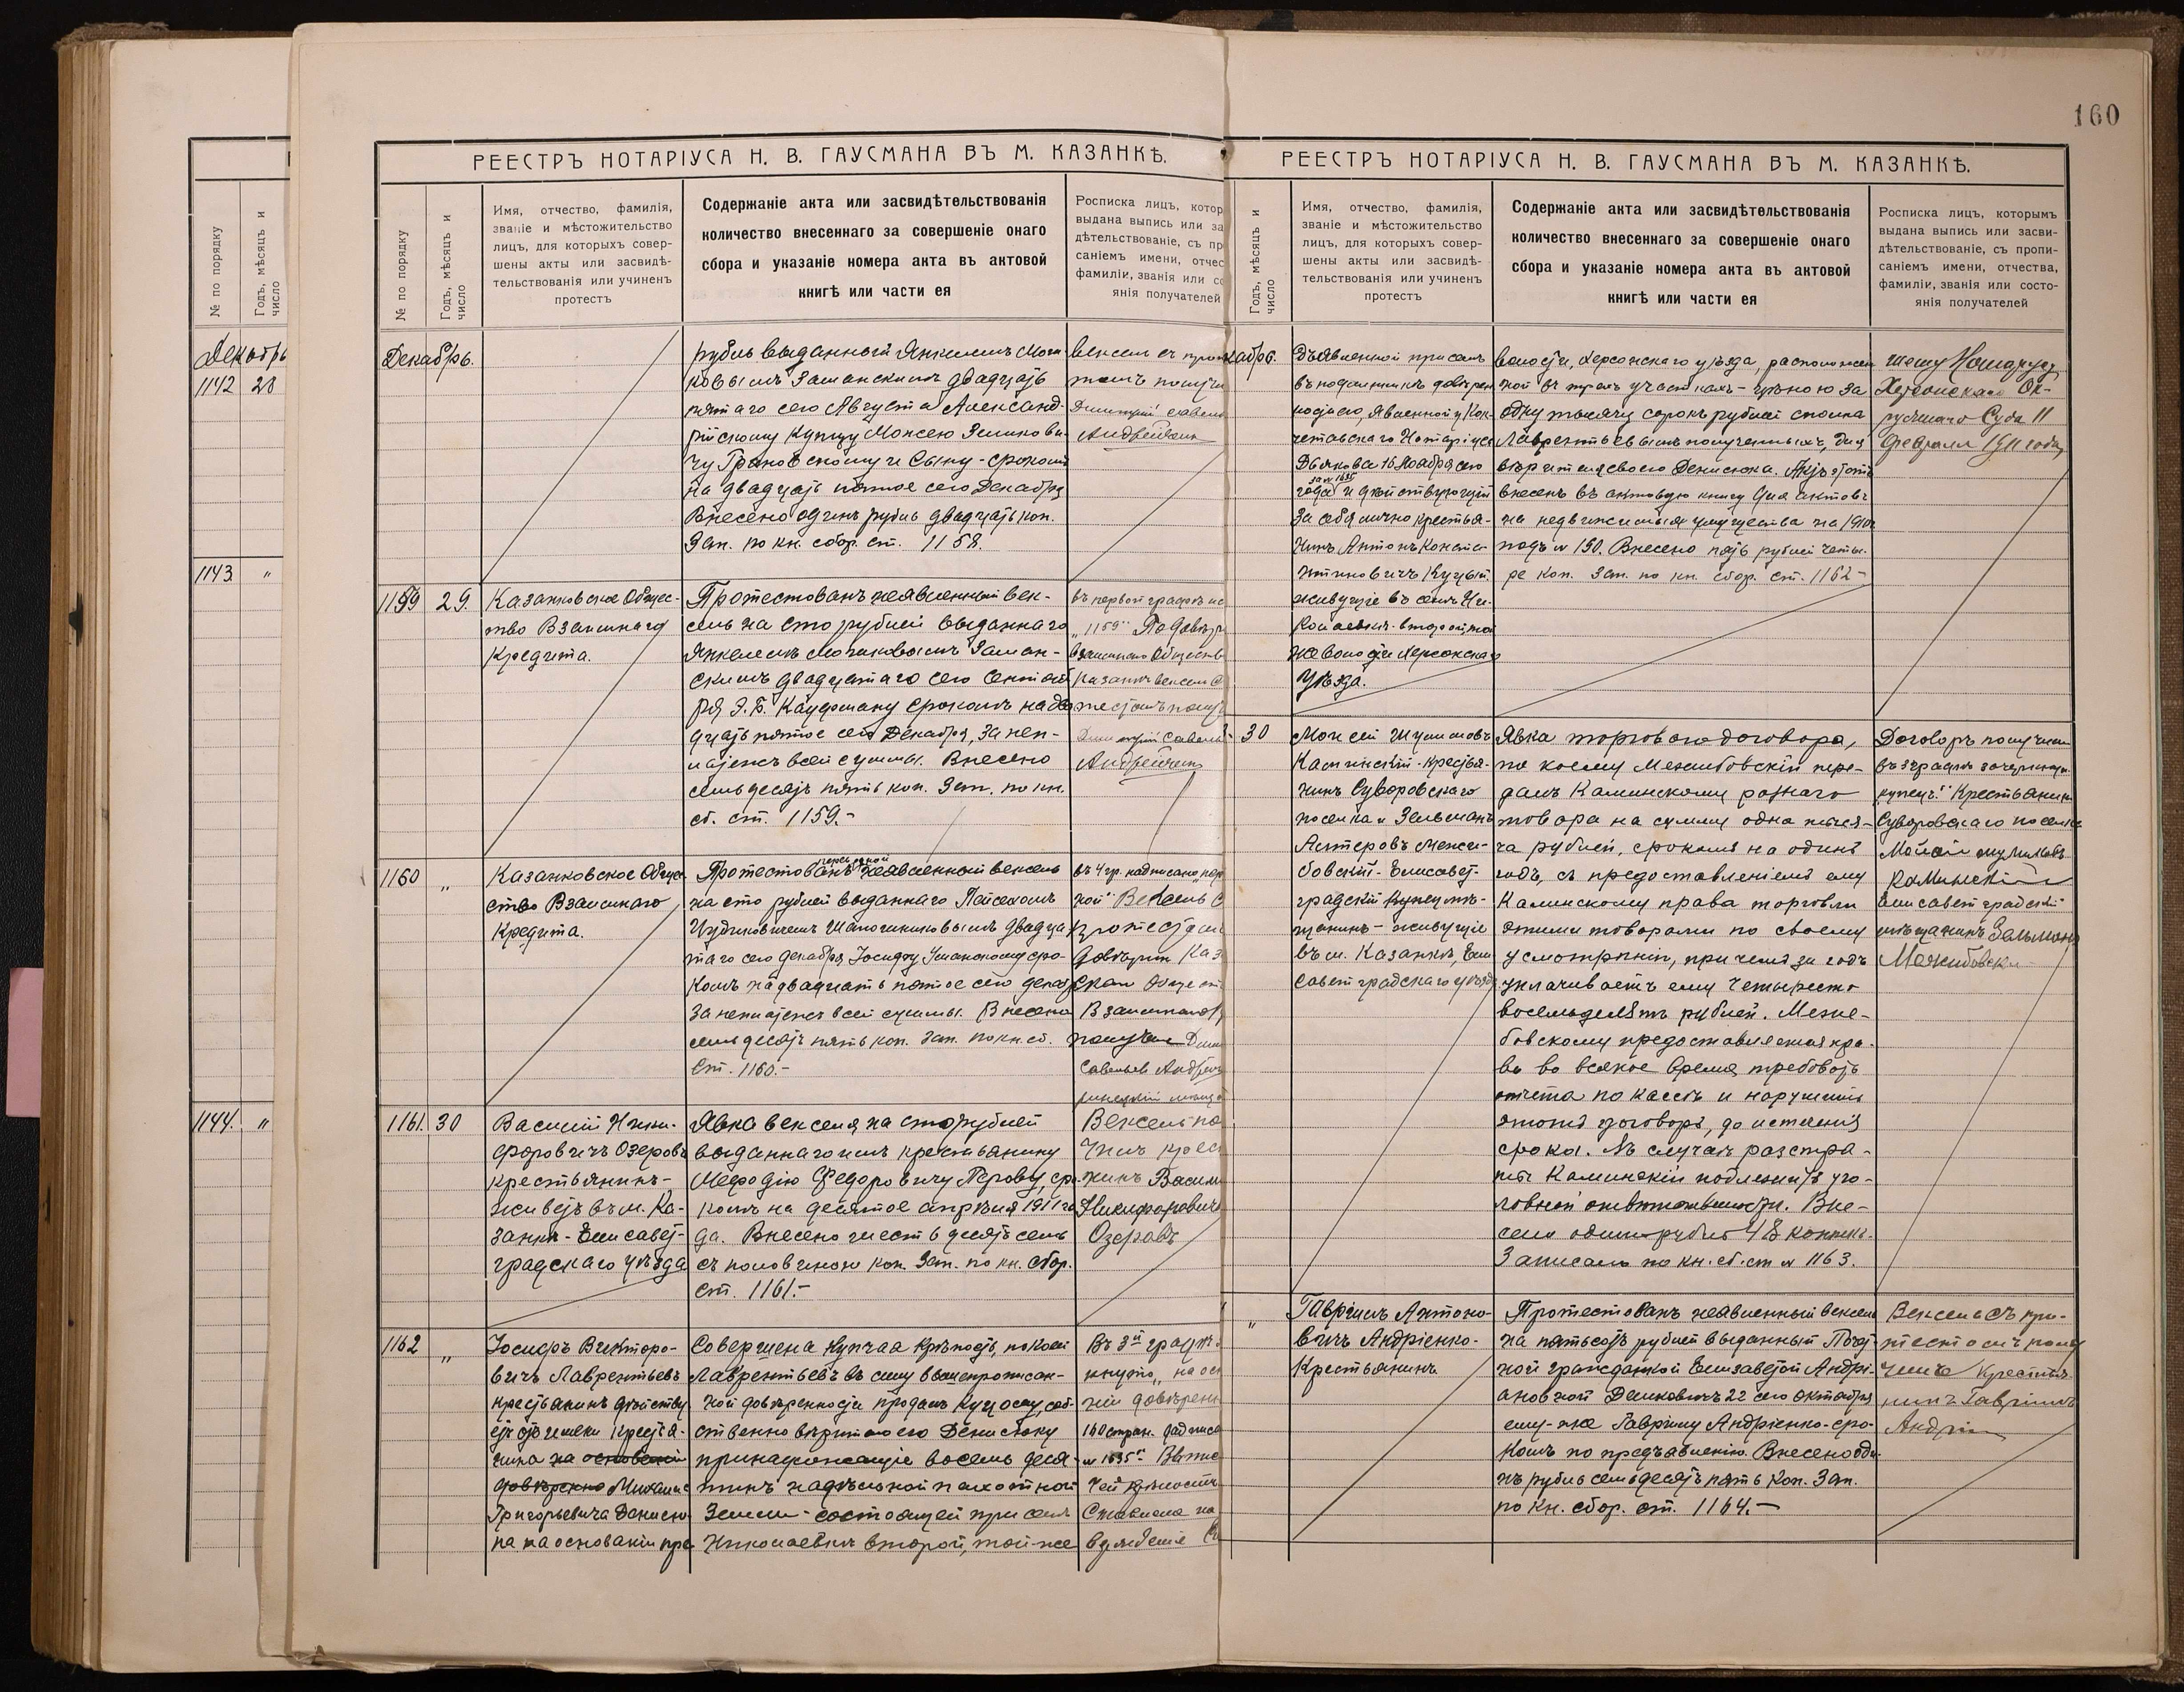 160
РЕЕСТРЪ НОТАРІУСА Н. В. ГАУСМАНА ВЪ М. КАЗАНКѢ.
№ по порядку
Годъ, мѣсяцъ и число
Имя, отчество, фамилія,
званіе и мѣстожительство
лицъ, для которыхъ совер-
шены акты или засвидѣ-
тельствованія или учиненъ
протестъ
Содержаніе акта или засвидѣтельствованія
количество внесеннаго за совершеніе онаго
сбора и указаніе номера акта въ актовой
книгѣ или части ея
Росписка лицъ, котор
выдана выпись или за
дѣтельствованіе, съ пр
саніемъ имени, отчес
фамиліи, званія или со
янія получателей
№ по порядку
Годъ, мѣсяцъ и
число
Декабрь
1142 28
1143. "
1144. "
Декабрь.
рубль выданный Янкелемъ Мош-
ковымъ Заманскимъ двадцать
пятаго сего Августа Александ-
рійскому купцу Моисею Зеликови-
чу Грановскому и Сыну - срокомъ
на двадцать пятое сего Декабря
Внесено одинъ рубль двадцать коп.
Зап. по кн. сбор. ст. 1158.
1159 29.
Казанковское Общес-
тво Взаимнаго
Кредита.
Протестованъ неявленный век-
сель на сто рублей выданнаго
Янкелемъ Мошковымъ Заман-
скимъ двадцатаго сего Сентяб
ря Э. Б. Кауфману срокомъ на два
дцать пятое сего Декабря, за неп-
латежъ всей суммы. Внесено
семьдесятъ пять коп. Зап. по кн.
сб. ст. 1159.-
въ первой графѣ
"1159" По довѣр
Взаимнаго Обществ
Казанкѣ вексель
Андрейченко
1160 "
Казанковское Общес
ство Взаимнаго
Кредита.
Протестованъ неявленный вексель
на сто рублей выданнаго
двадца
таго сего декабря Іосифу Уманскому сро-
комъ на двадцать пятое сего декаб
за неплатежъ всей суммы. Внесено
семьдесятъ пять коп. Зап. по кн. сб.
ст. 1160.-
въ 4 гр. надписано
ной" Вексель с
протестом
Взаимнаго
1161. 30
Василій Ники-
форовичъ Озеровъ
крестьянинъ-
живетъ въ м. Ка-
занкѣ - Елисавет-
градскаго уѣзда
Явка векселя на сто рублей
выданнаго имъ крестьянину
Мефодію Федоровичу Перову, сро
комъ на десятое апрѣля 1911 го
да. Внесено шестьдесятъ семь
съ половиною коп. Зап. по кн. сбор.
ст. 1161.-
Вексель по
чилъ крес
нинъ Васил
Никифоровичъ
Озеровъ
1162 "
Іосифъ Викторо-
вичъ Лаврентьевъ
крестьянинъ дѣйству
етъ отъ имени крестья-
нина на основаніи
довѣренно Михаила
Григорьевича Денисю
ка на основаніи пре
Совершена Купчая крѣпость, по коей
Лаврентьевъ въ силу вышепрописан-
ной довѣренности продалъ Куцому, соб-
ственно вѣрителю его Денисюку
принадлежащіе восемь деся-
тинъ надѣльной пахотной
Земли - состоящей при селѣ
Николаевкѣ второй, той-же
Въ 3й графѣ
РЕЕСТРЪ НОТАРІУСА Н. В. ГАУСМАНА ВЪ М. КАЗАНКѢ.
Годъ, мѣсяцъ и
число
Имя, отчество, фамилія,
званіе и мѣстожительство
лицъ, для которыхъ совер-
шены акты или засвидѣ-
тельствованія или учиненъ
протестъ
Содержаніе акта или засвидѣтельствованія
количество внесеннаго за совершеніе онаго
сбора и указаніе номера акта въ актовой
книгѣ или части ея
Росписка лицъ, которымъ
выдана выпись или засви-
дѣтельствованіе, съ пропи-
саніемъ имени, отчества,
фамиліи, званія или состо-
янія получателей
кабрь.
дъявленной при семъ
въ подлинникѣ довѣрен
ности его, явленной у Кон-
Нотаріуса
Дьякова 16 Ноября сего
года за № 1635 и дѣйствующій
За себя лично крестья-
нинъ Антонъ Конста-
нтиновичъ Куцый
живущіе въ селѣ Ни-
колаевкѣ-второй, той
же волости Херсонскаго
уѣзда.
волости, Херсонскаго уѣзда, расположен
ной въ трехъ участкахъ - цѣною за
одну тысячу сорокъ рублей сполна
Лаврентьевымъ полученныхъ, для
вѣрителя своего Денисюка. Актъ этотъ
внесенъ въ актовую книгу для актовъ
на недвижимыя имущества на 1910
подъ № 190. Внесено пять рублей четы-
ре коп. Зап. по кн. сбор. ст. 1162-
шему Нотаріусу
Херсонскаго Ок-
ружнаго Суда 11
февраля 1911 года
30
Моисей Шулимовъ
Каминскій - крестья-
нинъ Суворовскаго
поселка и Зельманъ
Межи-
бовскій - Елисавет-
градскій
щанинъ - живущіе
въ м. Казанкѣ, Ели
саветградскаго уѣзда
Явка торговаго договора,
по коему Межибовскій пере-
далъ Каминскому разнаго
товара на сумму одна тыся-
ча рублей, срокомъ на одинъ
годъ, съ предоставленіемъ ему
Каминскому права торговли
этими товарами по своему
усмотрѣнію, при чемъ за годъ
уплачиваетъ ему четыреста
восемьдесятъ рублей. Межи-
бовскому предоставляется пра-
во во всякое время требовать
отчета по кассѣ и нарушить
этотъ договоръ, до истеченія
срока. Въ случаѣ растра-
ты Каминскій подлежитъ уго-
ловной отвѣтственности. Вне-
сено одинъ рубль 48 копѣекъ.
Записано по кн. сб. ст № 1163.
Договоръ получили
въ 3 графѣ зачеркнуто
"купецъ." Крестьянинъ
Суворовскаго поселка
Мойсей Шулимовъ
Каминскій
Елисаветградскій
мѣщанинъ Зельманъ
Межибовски
"
Гавріилъ Антоно-
вичъ Андріенко-
Крестьянинъ
Протестованъ неявленный вексель
на пятьсотъ рублей выданный Почет-
ной гражданкой Елизаветой Андрі-
ановной 22 сего Октября
ему-же Гавріилу Андріенко - сро-
комъ по предъявленію. Внесено оди
нъ рубль семьдесятъ пять коп. Зап.
по кн. сбор. ст. 1164.-
Вексель съ про-
тестомъ полу
чилъ Крестья-
нинъ Гавріилъ